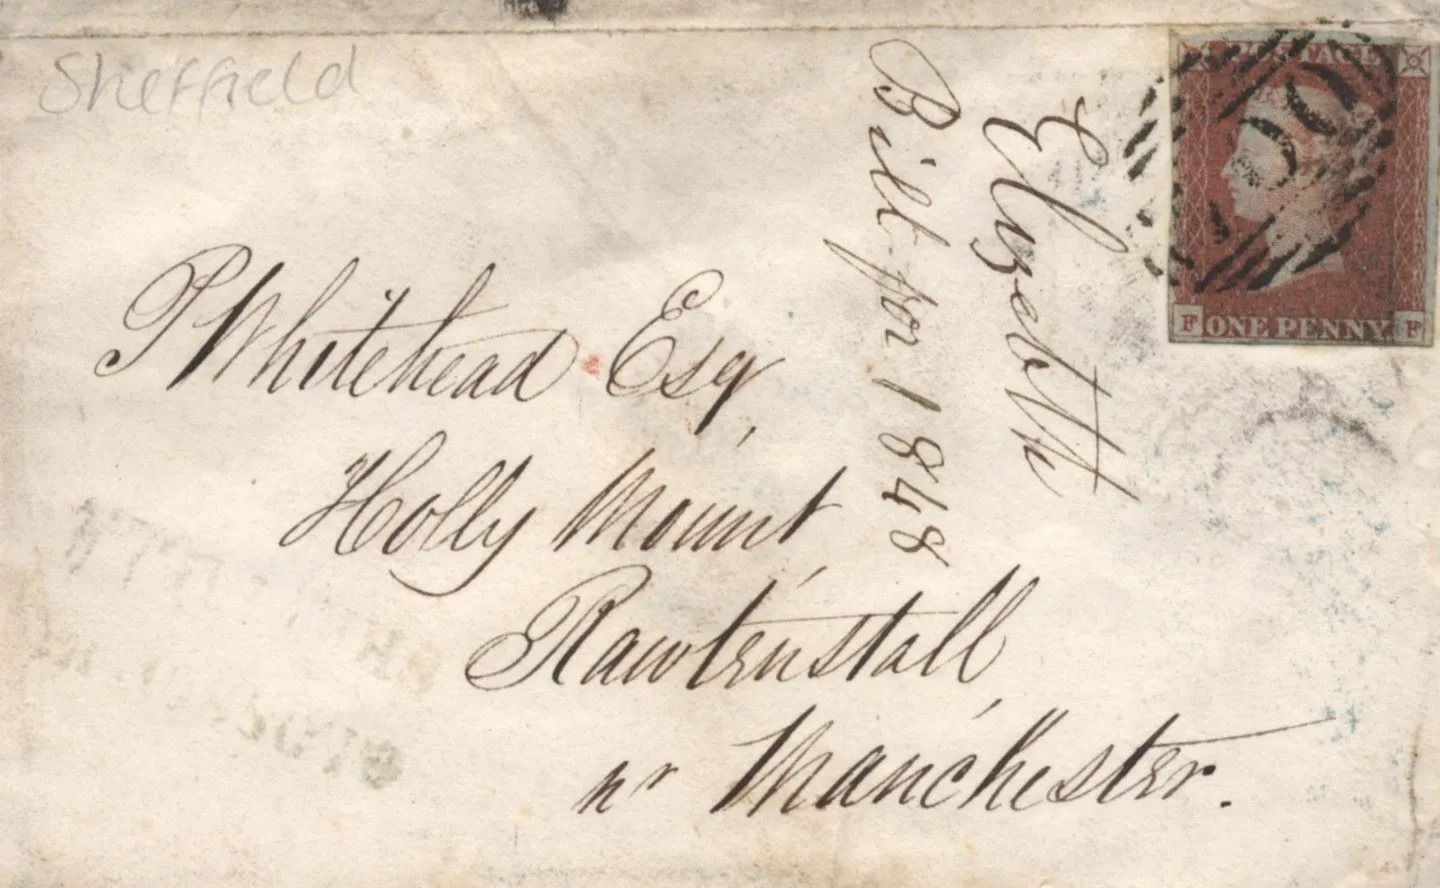 Sheffield
POSTAGE
F ONE PENNY. F
Elizabeth
Bill for 1848
P Whitehead Esq,
Holly Mount,
Rawtenstall,
nr Manchester.